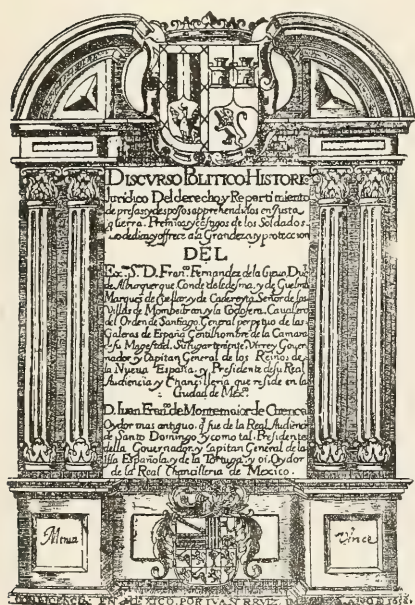 DISCVRSO POLITICO HISTORI
Juridico Del derecho, y Repartimiento
de presas y despojos apprehendidos en justa
guerra. Premios y castigos de los Soldados.
lo dedica y offrece a la Grandeza y protection
DEL
Ex.mo S.or D. Fran.co Fernandez de la Cueva Duq
de Alburquerque Conde de Ledesma, y de Guelma
Marques de Cuellar, y de Cadereyta, Señor de las
Villas de Mombeltran, y la Codosera, Cavallero
del Orden de Santiago, General perpetuo de las
Galeras de España, Gentilhombre de la Camara
de su Magestad. Su lugarteniente, Virrey Gover-
nador y Capitan General de los Reinos de
la Nueva España, y Presidente de su Real
Audiencia y Chancilleria que reside en la
Ciudad de Mex.co
D. Iuan Fran.co de Montemaior de Cuenca
Oydor mas antiguo, q̃ fue de la Real Audienci
de Santo Domingo, y como tal Presidente
della Governador y Capitan General de la
Isla Española, y de la Tortuga, y oi, Oydor
de la Real Chancilleria de Mexico.
Mima Vince
EN MEXICO, POR IVAN RVIZ,